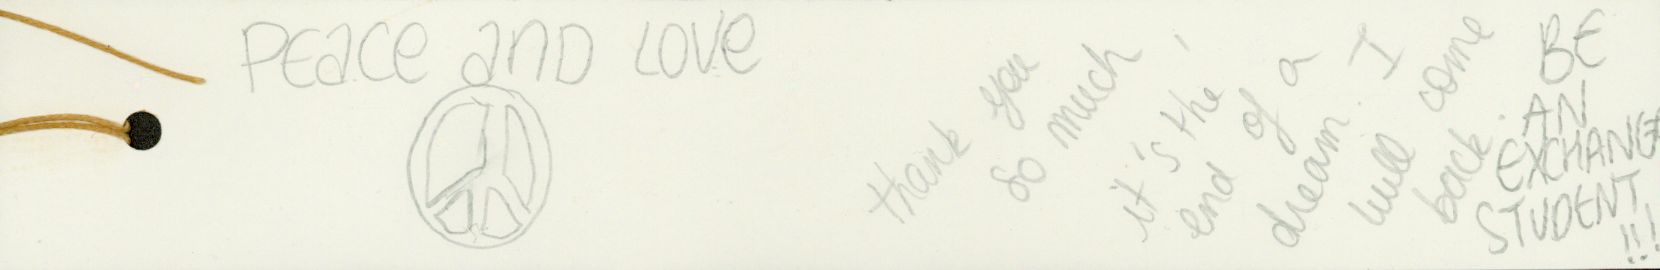 PEace and LOVE
thank you
so much
it's the
end of a
dream. I
will come
back.
BE
AN
EXCHANGE
STUDENT
!!!